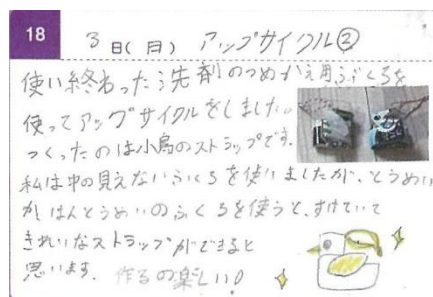 18 3日(月) アップサイクル②
使い終わった洗剤のつめかえ用ふくろを
使ってアップサイクルをしました。
つくったのは小鳥のストラップです。
私は中の見えないふくろを使いましたが、とうめい
かはんとうめいのふくろを使うと、すけていて
きれいなストラップができると
思います。作るの楽しい!